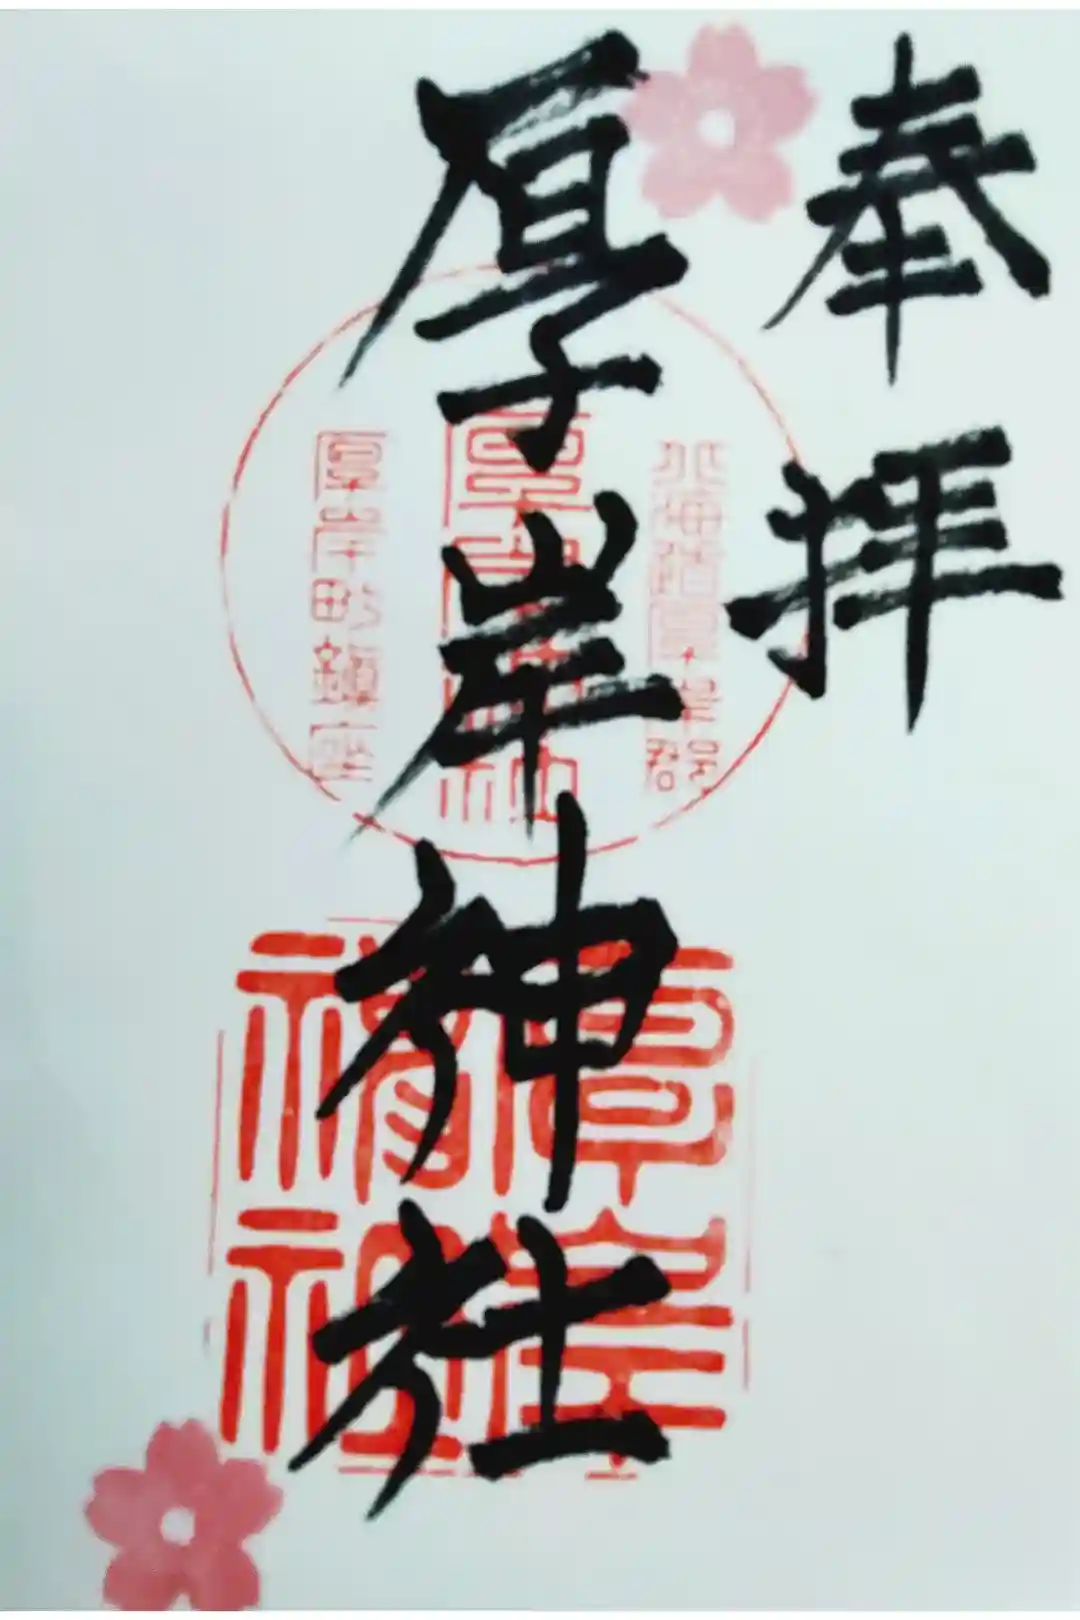 奉拝
北海道厚岸郡
厚岸神社
厚岸神社
厚岸町鎮座
厚岸神社